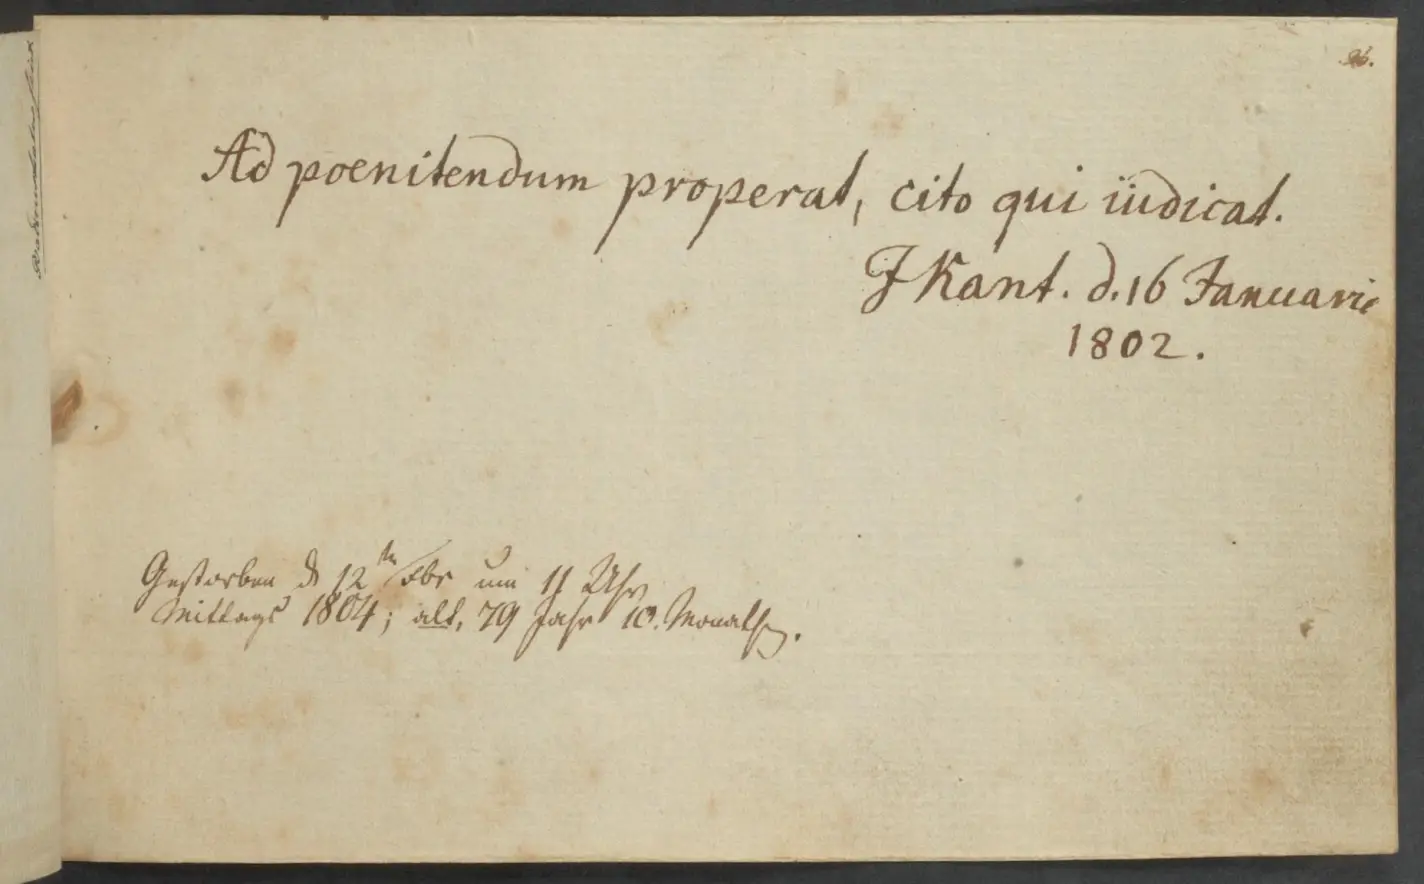 26.
Ad poenitendum properat, cito qui iudicat.
J Kant. d. 16 Januarii
1802.
Gestorben d 12ten Fbr um 11 Uhr
Mittags 1804; alt, 79 Jahr 10. Monath.